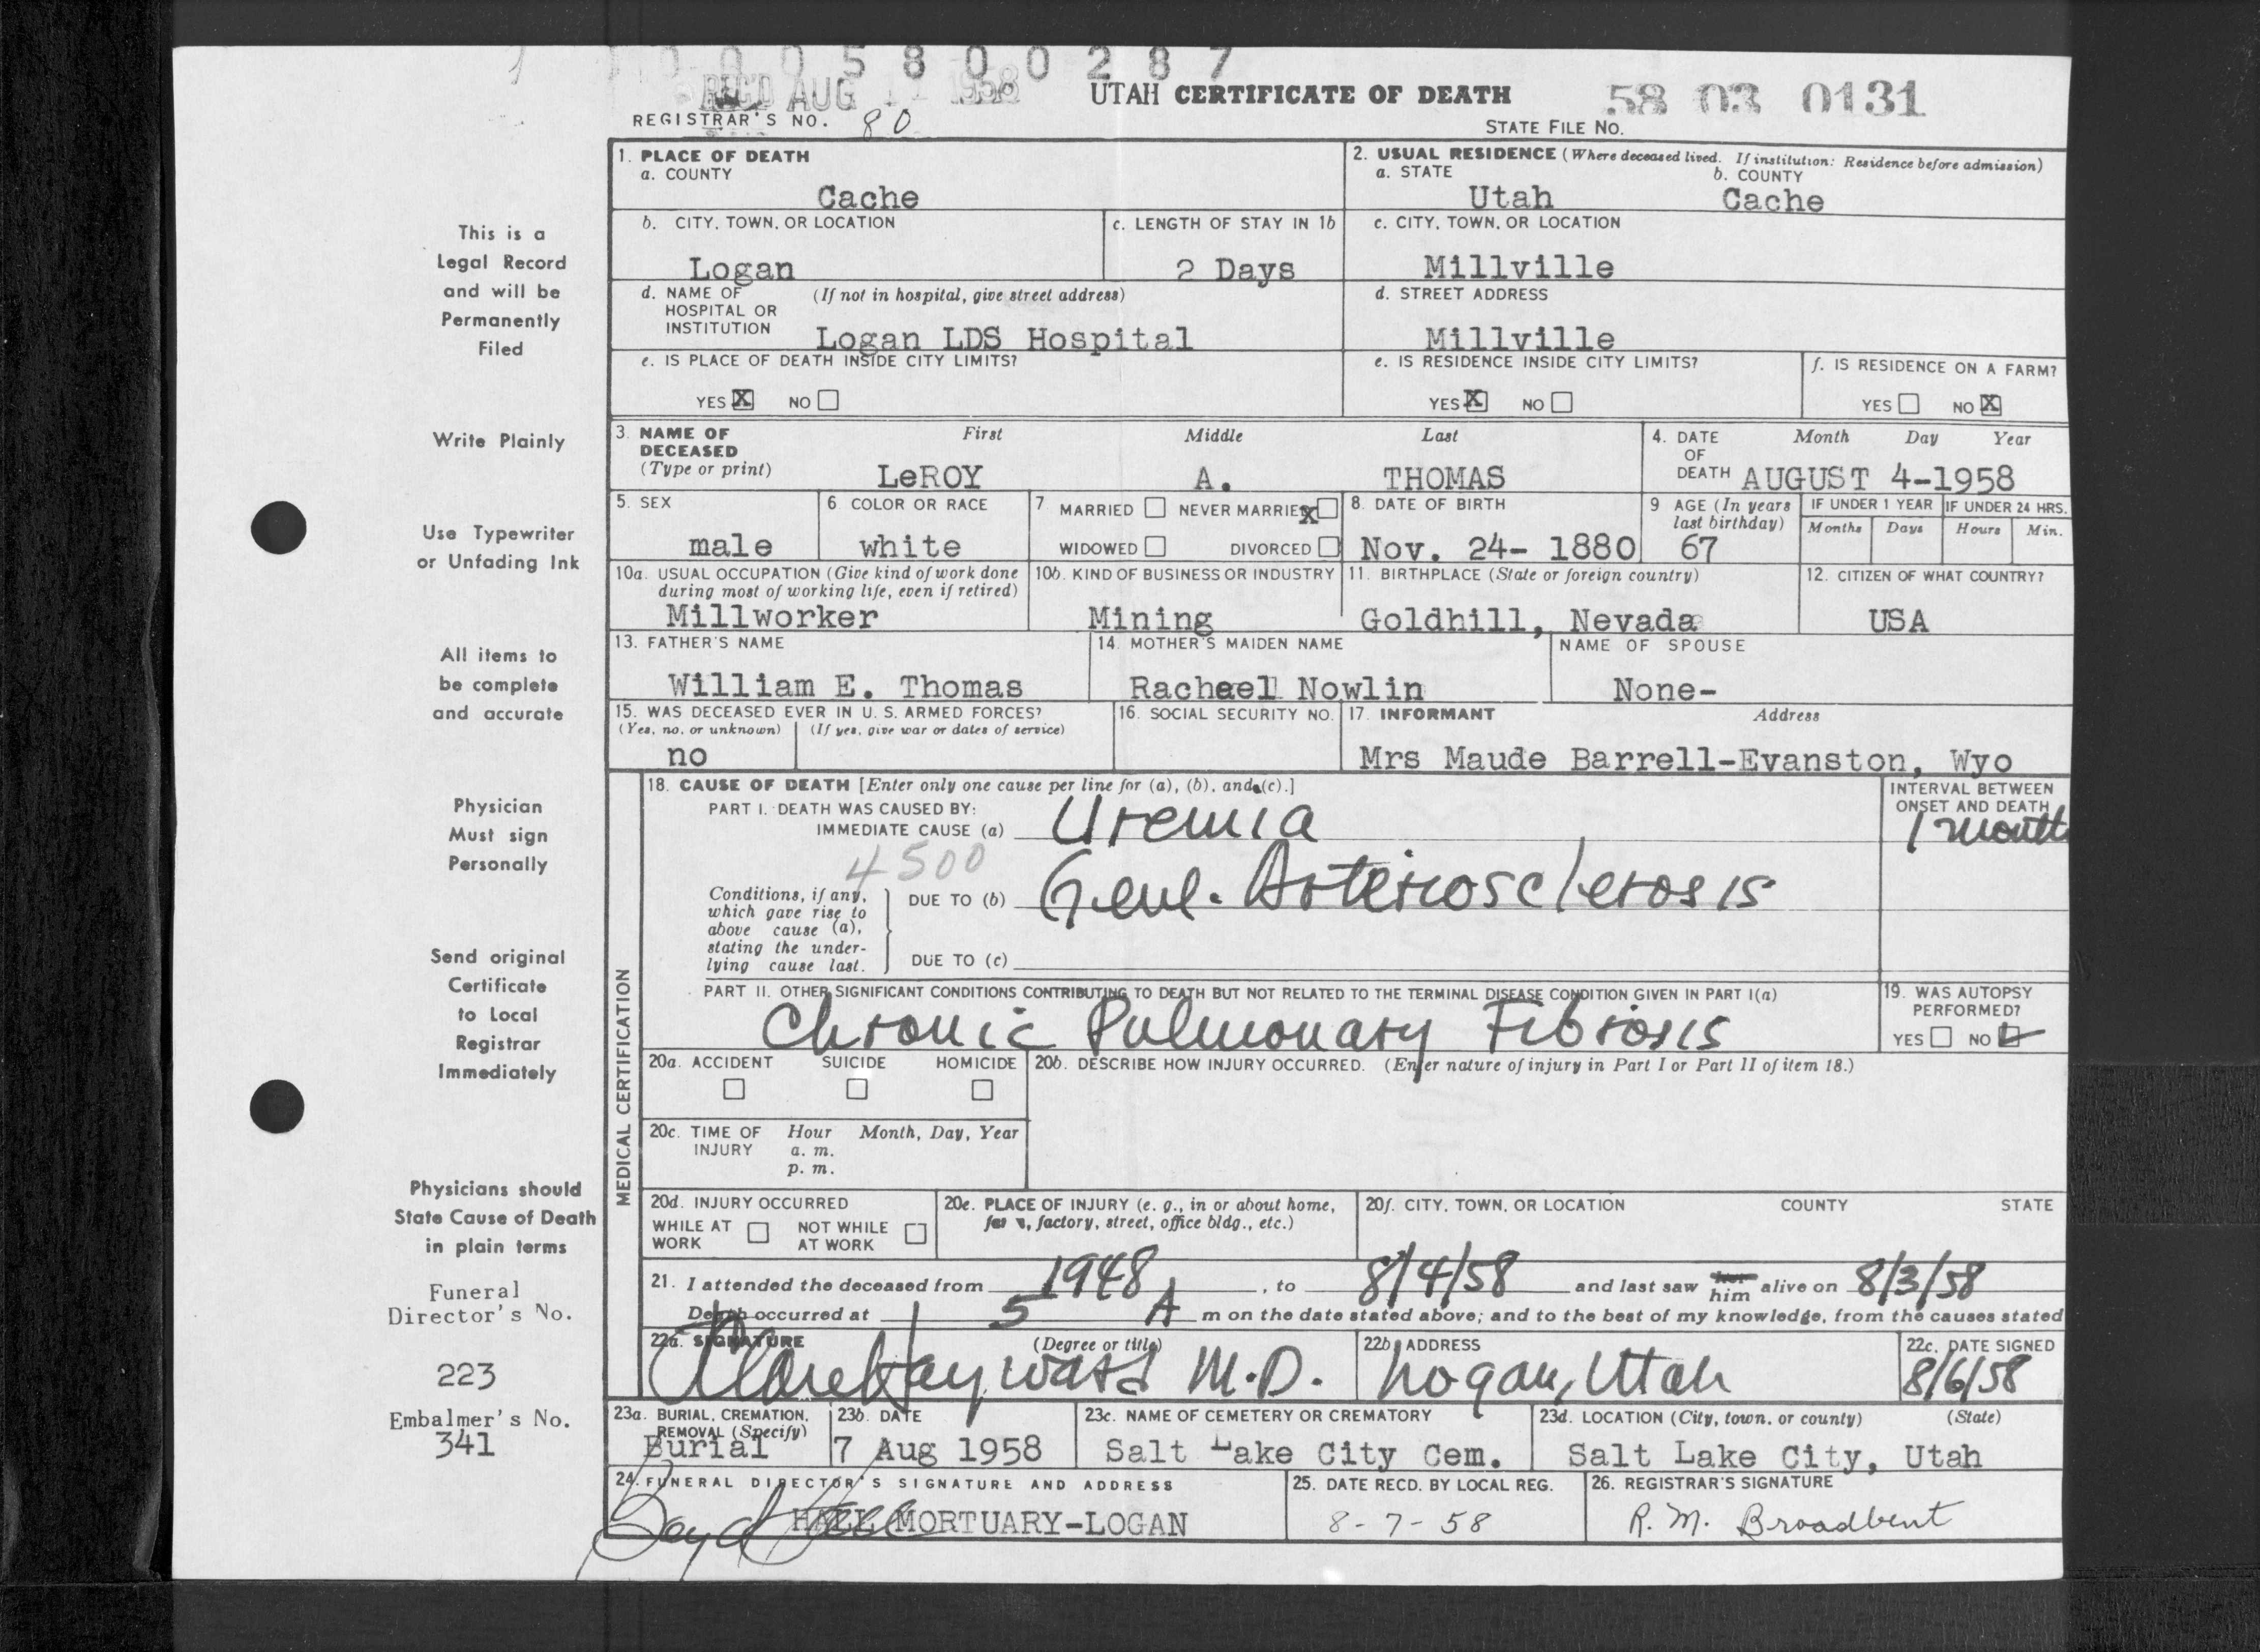 0 0 0 5 8 0 0 2 8 7
REC'D AUG 11 1958
UTAH CERTIFICATE OF DEATH
58 03 0131
REGISTRAR'S NO. 80
STATE FILE No.
1. PLACE OF DEATH
a. COUNTY
Cache
2. USUAL RESIDENCE (Where deceased lived. If institution: Residence before admission)
a. STATE b. COUNTY
Utah Cache
b. CITY, TOWN, OR LOCATION
Logan
c. LENGTH OF STAY IN 1b
2 Days
c. CITY, TOWN, OR LOCATION
Millville
d. NAME OF (If not in hospital, give street address)
HOSPITAL OR
INSTITUTION Logan LDS Hospital
d. STREET ADDRESS
Millville
e. IS PLACE OF DEATH INSIDE CITY LIMITS?
YES X NO
e. IS RESIDENCE INSIDE CITY LIMITS?
YES X NO
f. IS RESIDENCE ON A FARM?
YES NO X
3. NAME OF DECEASED First Middle Last
(Type or print) LeROY A. THOMAS
4. DATE OF DEATH Month Day Year
AUGUST 4-1958
5. SEX
male
6 COLOR OR RACE
white
7 MARRIED NEVER MARRIED X
WIDOWED DIVORCED
8. DATE OF BIRTH
Nov. 24- 1880
9 AGE (In years last birthday)
67
IF UNDER 1 YEAR
Months Days
IF UNDER 24 HRS.
Hours Min.
10a. USUAL OCCUPATION (Give kind of work done
during most of working life, even if retired)
Millworker
10b. KIND OF BUSINESS OR INDUSTRY
Mining
11. BIRTHPLACE (State or foreign country)
Goldhill, Nevada
12. CITIZEN OF WHAT COUNTRY?
USA
13. FATHER'S NAME
William E. Thomas
14. MOTHER'S MAIDEN NAME
Rachael Nowlin
NAME OF SPOUSE
None-
15. WAS DECEASED EVER IN U. S. ARMED FORCES?
(Yes, no, or unknown) (If yes, give war or dates of service)
no
16. SOCIAL SECURITY NO.
17. INFORMANT Address
Mrs Maude Barrell-Evanston, Wyo
MEDICAL CERTIFICATION
18. CAUSE OF DEATH [Enter only one cause per line for (a), (b), and (c).]
PART I. DEATH WAS CAUSED BY:
IMMEDIATE CAUSE (a) Uremia
INTERVAL BETWEEN
ONSET AND DEATH
1 month
4500
Conditions, if any,
which gave rise to
above cause (a),
stating the under-
lying cause last.
DUE TO (b) Genl. Arteriosclerosis
DUE TO (c)
PART II. OTHER SIGNIFICANT CONDITIONS CONTRIBUTING TO DEATH BUT NOT RELATED TO THE TERMINAL DISEASE CONDITION GIVEN IN PART I(a)
Chronic Pulmonary Fibrosis
19. WAS AUTOPSY
PERFORMED?
YES NO
20a. ACCIDENT SUICIDE HOMICIDE
20b. DESCRIBE HOW INJURY OCCURRED. (Enter nature of injury in Part I or Part II of item 18.)
20c. TIME OF Hour Month, Day, Year
INJURY a. m.
p. m.
20d. INJURY OCCURRED
WHILE AT WORK NOT WHILE AT WORK
20e. PLACE OF INJURY (e. g., in or about home,
factory, street, office bldg., etc.)
20f. CITY, TOWN, OR LOCATION COUNTY STATE
21. I attended the deceased from 1948, to 8/4/58 and last saw her him alive on 8/3/58
Death occurred at 5 A m on the date stated above; and to the best of my knowledge, from the causes stated
22a. SIGNATURE (Degree or title)
Hayward M.D.
22b. ADDRESS
Logan, Utah
22c. DATE SIGNED
8/6/58
23a. BURIAL, CREMATION,
REMOVAL (Specify)
Burial
23b. DATE
7 Aug 1958
23c. NAME OF CEMETERY OR CREMATORY
Salt Lake City Cem.
23d. LOCATION (City, town, or county) (State)
Salt Lake City, Utah
24. FUNERAL DIRECTOR'S SIGNATURE AND ADDRESS
Boyd Hall HALL MORTUARY-LOGAN
25. DATE RECD. BY LOCAL REG.
8-7-58
26. REGISTRAR'S SIGNATURE
R. M. Broadbent
This is a
Legal Record
and will be
Permanently
Filed
Write Plainly
Use Typewriter
or Unfading Ink
All items to
be complete
and accurate
Physician
Must sign
Personally
Send original
Certificate
to Local
Registrar
Immediately
Physicians should
State Cause of Death
in plain terms
Funeral
Director's No.
223
Embalmer's No.
341